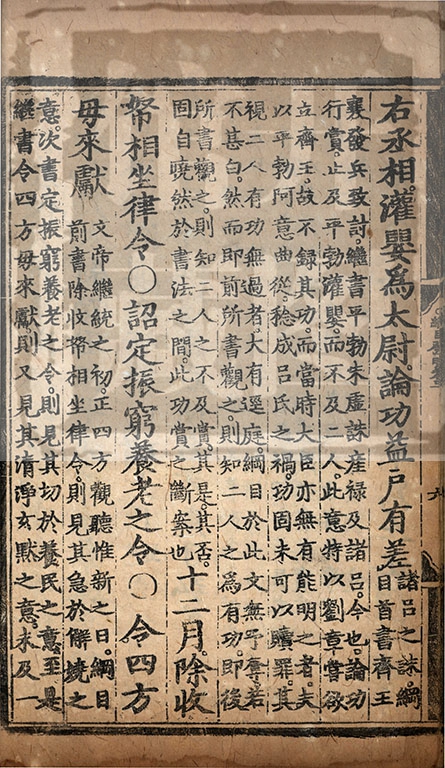 右丞相灌嬰為太尉論功益戶有差
諸呂之誅綱
目首書齊王
襄發兵致討繼書平勃朱虛誅産祿及諸呂今也論功
行賞止及平勃灌嬰而不及二人此意特以劉章嘗欲
立齊王故不錄其功而當時大臣亦無有能明之者夫
以平勃阿意曲從稔成呂氏之禍功固未可以贖罪其
視二人有功無過者大有逕庭綱目於此文無予奪若
不甚白然而即前所書觀之則知二人之為有功即後
所書觀之則知二人之不及賞其是其否
固自曉然於書法之間此功賞之斷案也
十二月除收
帑相坐律令○詔定振窮養老之令○令四方
毋來獻
文帝繼統之初正四方觀聽惟新之日綱目
前書除收帑相坐律令則見其急於解嬈之
意次書定振窮養老之令則見其切於養民之意至是
繼書令四方毋來獻則又見其清淨玄默之意未及一